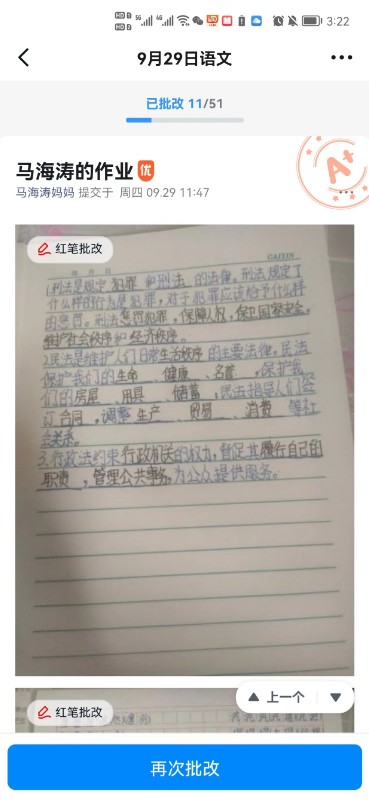 3:22
9月29日语文
已批改 11/51
马海涛的作业 优
A+
马海涛妈妈 提交于 周四 09.29 11:47
红笔批改
年 月 日
GAIXIN
1.刑法是规定犯罪和刑法的法律。刑法规定了
什么样的行为是犯罪,对于犯罪应该给予什么样
的惩罚。刑法惩罚犯罪,保障人权,保卫国家安全,
维护社会秩序和经济秩序。
2.民法是维护人们日常生活秩序的主要法律。民法
保护我们的生命、健康、名誉,保护我
们的房屋、用具、储蓄,民法指导人们签
订合同,调整生产、贸易、消费等社
会关系。
3.行政法约束行政机关的权力,督促其履行自己的
职责,管理公共事务,为公众提供服务。
红笔批改
上一个
再次批改